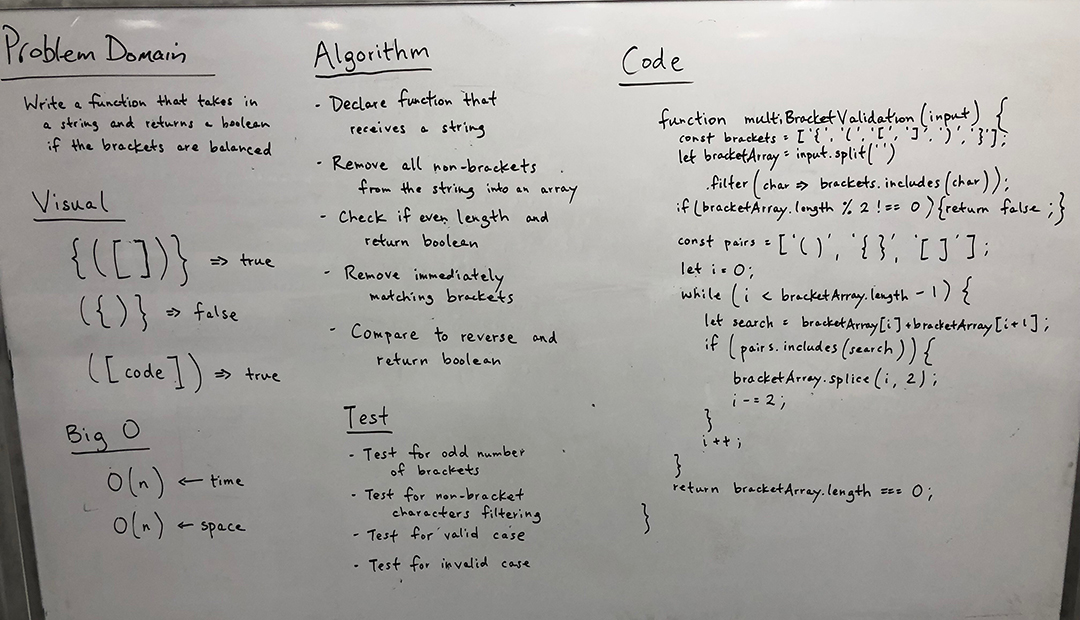 Problem Domain
Write a function that takes in
a string and returns a boolean
if the brackets are balanced
Visual
{([])} => true
({)} => false
([code]) => true
Big O
O(n) ← time
O(n) ← space
Algorithm
- Declare function that
receives a string
- Remove all non-brackets
from the string into an array
- Check if even length and
return boolean
- Remove immediately
matching brackets
- Compare to reverse and
return boolean
Test
- Test for odd number
of brackets
- Test for non-bracket
characters filtering
- Test for valid case
- Test for invalid case
Code
function multiBracketValidation(input) {
const brackets = ['{', '(', '[', ']', ')', '}'];
let bracketArray = input.split('')
.filter(char => brackets.includes(char));
if (bracketArray.length % 2 !== 0) {return false;}
const pairs = ['()', '{}', '[]'];
let i = 0;
while (i < bracketArray.length - 1) {
let search = bracketArray[i]+bracketArray[i+1];
if (pairs.includes(search)) {
bracketArray.splice(i, 2);
i -= 2;
}
i++;
}
return bracketArray.length === 0;
}